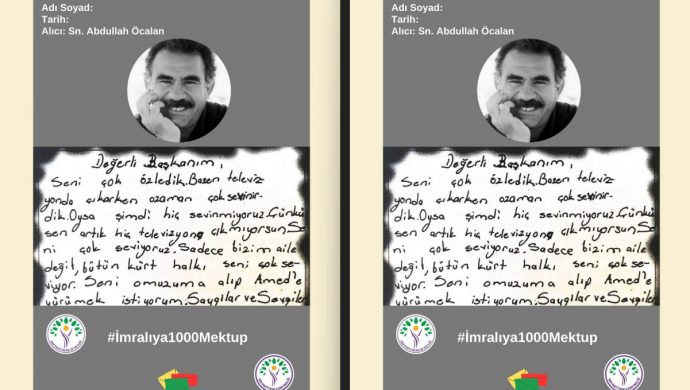 Adı Soyad:
Tarih:
Alıcı: Sn. Abdullah Öcalan
Değerli Başkanım,
Seni çok özledik.Bazen televiz-
yonda çıkarken ozaman çok sevinir-
dik.Oysa şimdi hiç sevinmiyoruz.Çünkü
sen artık hiç televizyona çıkmıyorsun.Se-
ni çok seviyoruz.Sadece bizim aile
değil, bütün kürt halkı seni çok se-
viyor. Seni omuzuma alıp Amed'e
yürümek istiyorum.Saygılar ve Sevgiler
#İmralıya1000Mektup
Adı Soyad:
Tarih:
Alıcı: Sn. Abdullah Öcalan
Değerli Başkanım,
Seni çok özledik.Bazen televiz-
yonda çıkarken ozaman çok sevinir-
dik.Oysa şimdi hiç sevinmiyoruz.Çünkü
sen artık hiç televizyona çıkmıyorsun.Se-
ni çok seviyoruz.Sadece bizim aile
değil, bütün kürt halkı seni çok se-
viyor. Seni omuzuma alıp Amed'e
yürümek istiyorum.Saygılar ve Sevgiler
#İmralıya1000Mektup